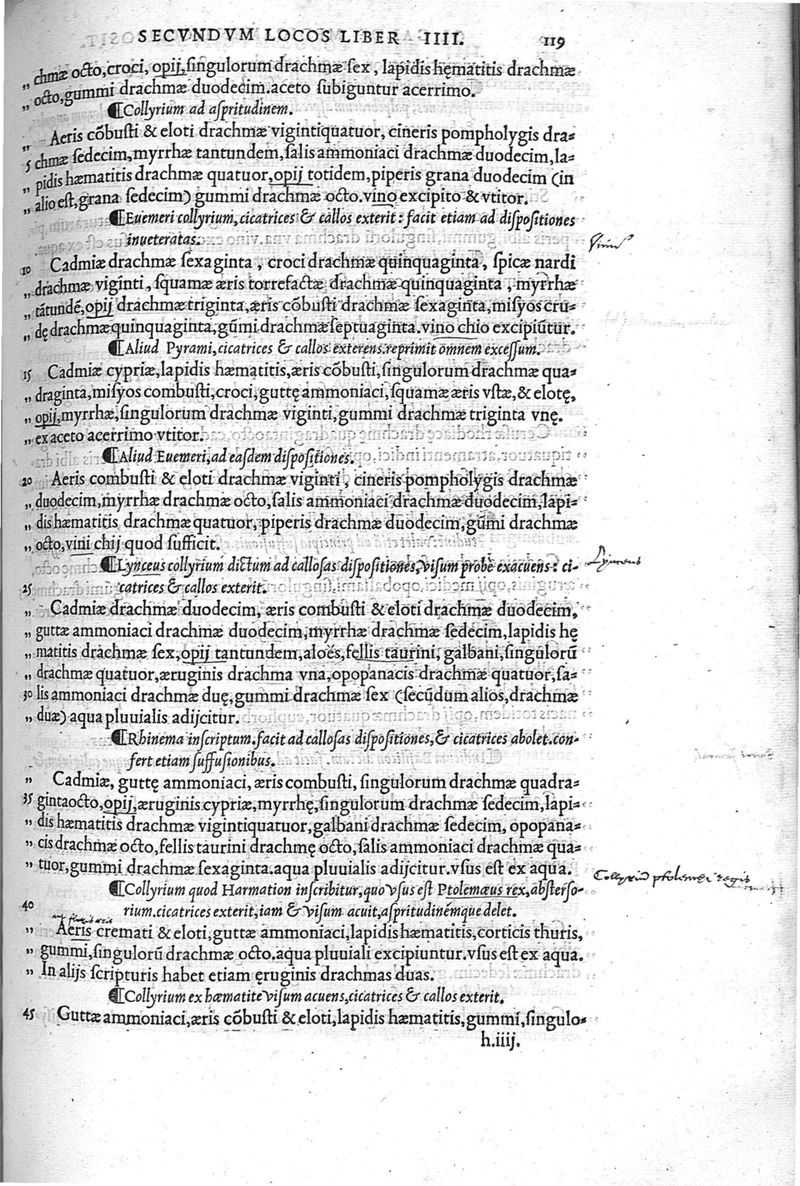 SECVNDVM LOCOS LIBER IIII. 119
„ chmæ octo, croci, opij, singulorum drachmæ sex, lapidis hęmatitis drachmæ
„ octo, gummi drachmæ duodecim. aceto subiguntur acerrimo.
¶Collyrium ad aspritudinem.
„ Aeris cõbusti & eloti drachmæ vigintiquatuor, cineris pompholygis dra-
5 chmæ sedecim, myrrhæ tantundem, salis ammoniaci drachmæ duodecim, la-
„ pidis hæmatitis drachmæ quatuor, opij totidem, piperis grana duodecim (in
„ alio est, grana sedecim) gummi drachmæ octo. vino excipito & vtitor.
¶Euemeri collyrium, cicatrices & callos exterit: facit etiam ad dispositiones
inueteratas.
10 Cadmiæ drachmæ sexaginta, croci drachmæ quinquaginta, spicæ nardi
„ drachmæ viginti, squamæ æris torrefactæ drachmæ quinquaginta, myrrhæ
„ tãtundẽ, opij drachmæ triginta, æris cõbusti drachmæ sexaginta, misyos cru-
„ dę drachmæ quinquaginta, gũmi drachmæ septuaginta. vino chio excipiũtur.
¶Aliud Pyrami, cicatrices & callos exterens. reprimit omnem excessum.
15 Cadmiæ cypriæ, lapidis hæmatitis, æris cõbusti, singulorum drachmæ qua-
„ draginta, misyos combusti, croci, guttę ammoniaci, squamæ æris vstæ, & elotę,
„ opij, myrrhæ, singulorum drachmæ viginti, gummi drachmæ triginta vnę.
„ ex aceto acerrimo vtitor.
¶Aliud Euemeri, ad easdem dispositiones.
20 Aeris combusti & eloti drachmæ viginti, cineris pompholygis drachmæ
„ duodecim, myrrhæ drachmæ octo, salis ammoniaci drachmæ duodecim, lapi-
„ dis hæmatitis drachmæ quatuor, piperis drachmæ duodecim, gũmi drachmæ
„ octo, vini chij quod sufficit.
¶Lynceus collyrium dictum ad callosas dispositiones, visum probe exacuens: ci-
25 catrices & callos exterit.
„ Cadmiæ drachmæ duodecim, æris combusti & eloti drachmæ duodecim,
„ guttæ ammoniaci drachmæ duodecim, myrrhæ drachmæ sedecim, lapidis hę
„ matitis drachmæ sex, opij tantundem, aloës, fellis taurini, galbani, singulorũ
„ drachmæ quatuor, æruginis drachma vna, opopanacis drachmæ quatuor, sa-
30 lis ammoniaci drachmæ duę, gummi drachmæ sex (secũdum alios, drachmæ
„ duæ) aqua pluuialis adijcitur.
¶Rhinema inscriptum. facit ad callosas dispositiones, & cicatrices abolet. con-
fert etiam suffusionibus.
„ Cadmiæ, guttę ammoniaci, æris combusti, singulorum drachmæ quadra-
35 gintaocto, opij, æruginis cypriæ, myrrhę, singulorum drachmæ sedecim, lapi-
„ dis hæmatitis drachmæ vigintiquatuor, galbani drachmæ sedecim, opopana-
„ cis drachmæ octo, fellis taurini drachmę octo, salis ammoniaci drachmæ qua-
„ tuor, gummi drachmæ sexaginta. aqua pluuialis adijcitur. vsus est ex aqua.
Collyriũ ptolemei regis
¶Collyrium quod Harmation inscribitur, quo vsus est Ptolemæus rex, absterso-
40 rium. cicatrices exterit, iam & visum acuit, aspritudinémque delet.
„ Aeris cremati & eloti, guttæ ammoniaci, lapidis hæmatitis, corticis thuris,
„ gummi, singulorũ drachmæ octo. aqua pluuiali excipiuntur. vsus est ex aqua.
„ In alijs scripturis habet etiam ęruginis drachmas duas.
¶Collyrium ex hæmatite visum acuens, cicatrices & callos exterit.
45 Guttæ ammoniaci, æris cõbusti & eloti, lapidis hæmatitis, gummi, singulo-
h.iiij.